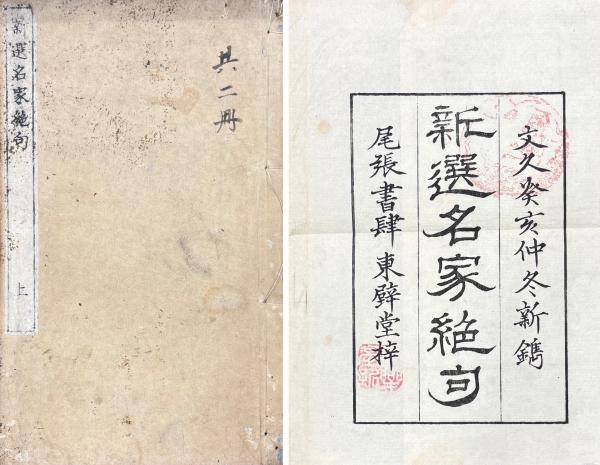 新選名家絶句
上
共二冊
文久癸亥仲冬新鐫
新選名家絶句
尾張書肆 東壁堂梓